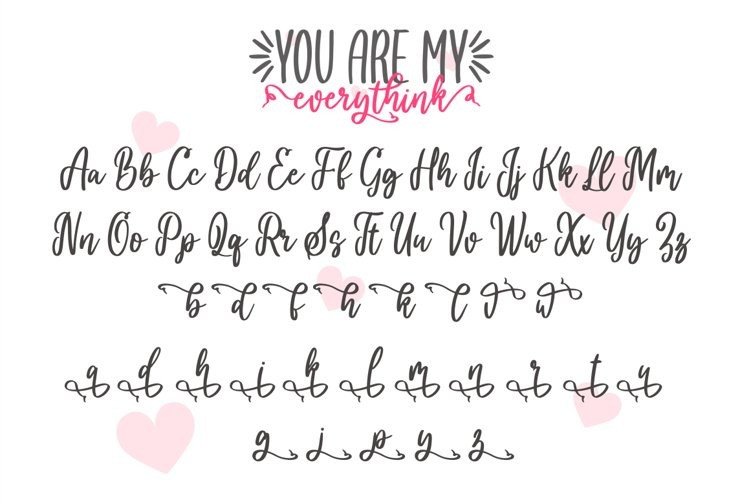 YOU ARE MY
everythink
Aa Bb Cc Dd Ee Ff Gg Hh Ii Jj Kk Ll Mm
Nn Oo Pp Qq Rr Ss Tt Uu Vv Ww Xx Yy Zz
b d f h k l v w
a d h i k l m n r t u
g j p y z